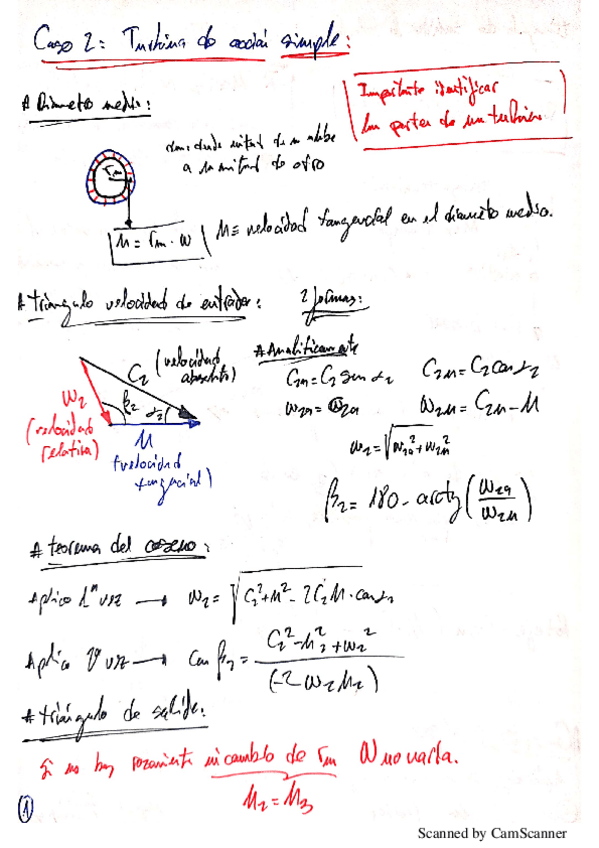 Caso 2: Turbina de acción simple:
Importante identificar
las partes de una turbina
* Diámetro medio:
desde mitad de un álabe
a la mitad de otro
rm
u = rm · w
u ≡ velocidad tangencial en el diámetro medio.
* Triángulo velocidad de entrada:
2 formas:
C2 (velocidad absoluta)
w2 (velocidad relativa)
β2
α2
u (velocidad tangencial)
* Analíticamente
C2a = C2 sen α2
C2u = C2 cos α2
w2a = C2a
w2u = C2u - u
w2 = √(w2a² + w2u²)
β2 = 180 - arctg (w2a / w2u)
* teorema del coseno:
Aplico 1ª vez → w2 = √(C2² + u² - 2C2u · cos α2)
Aplico 2ª vez → cos β2 = (C2² - u2² + w2²) / (-2 w2 u2)
* triángulo de salida:
Si no hay rozamiento ni cambio de rm w no varía.
u2 = u3
1
Scanned by CamScanner